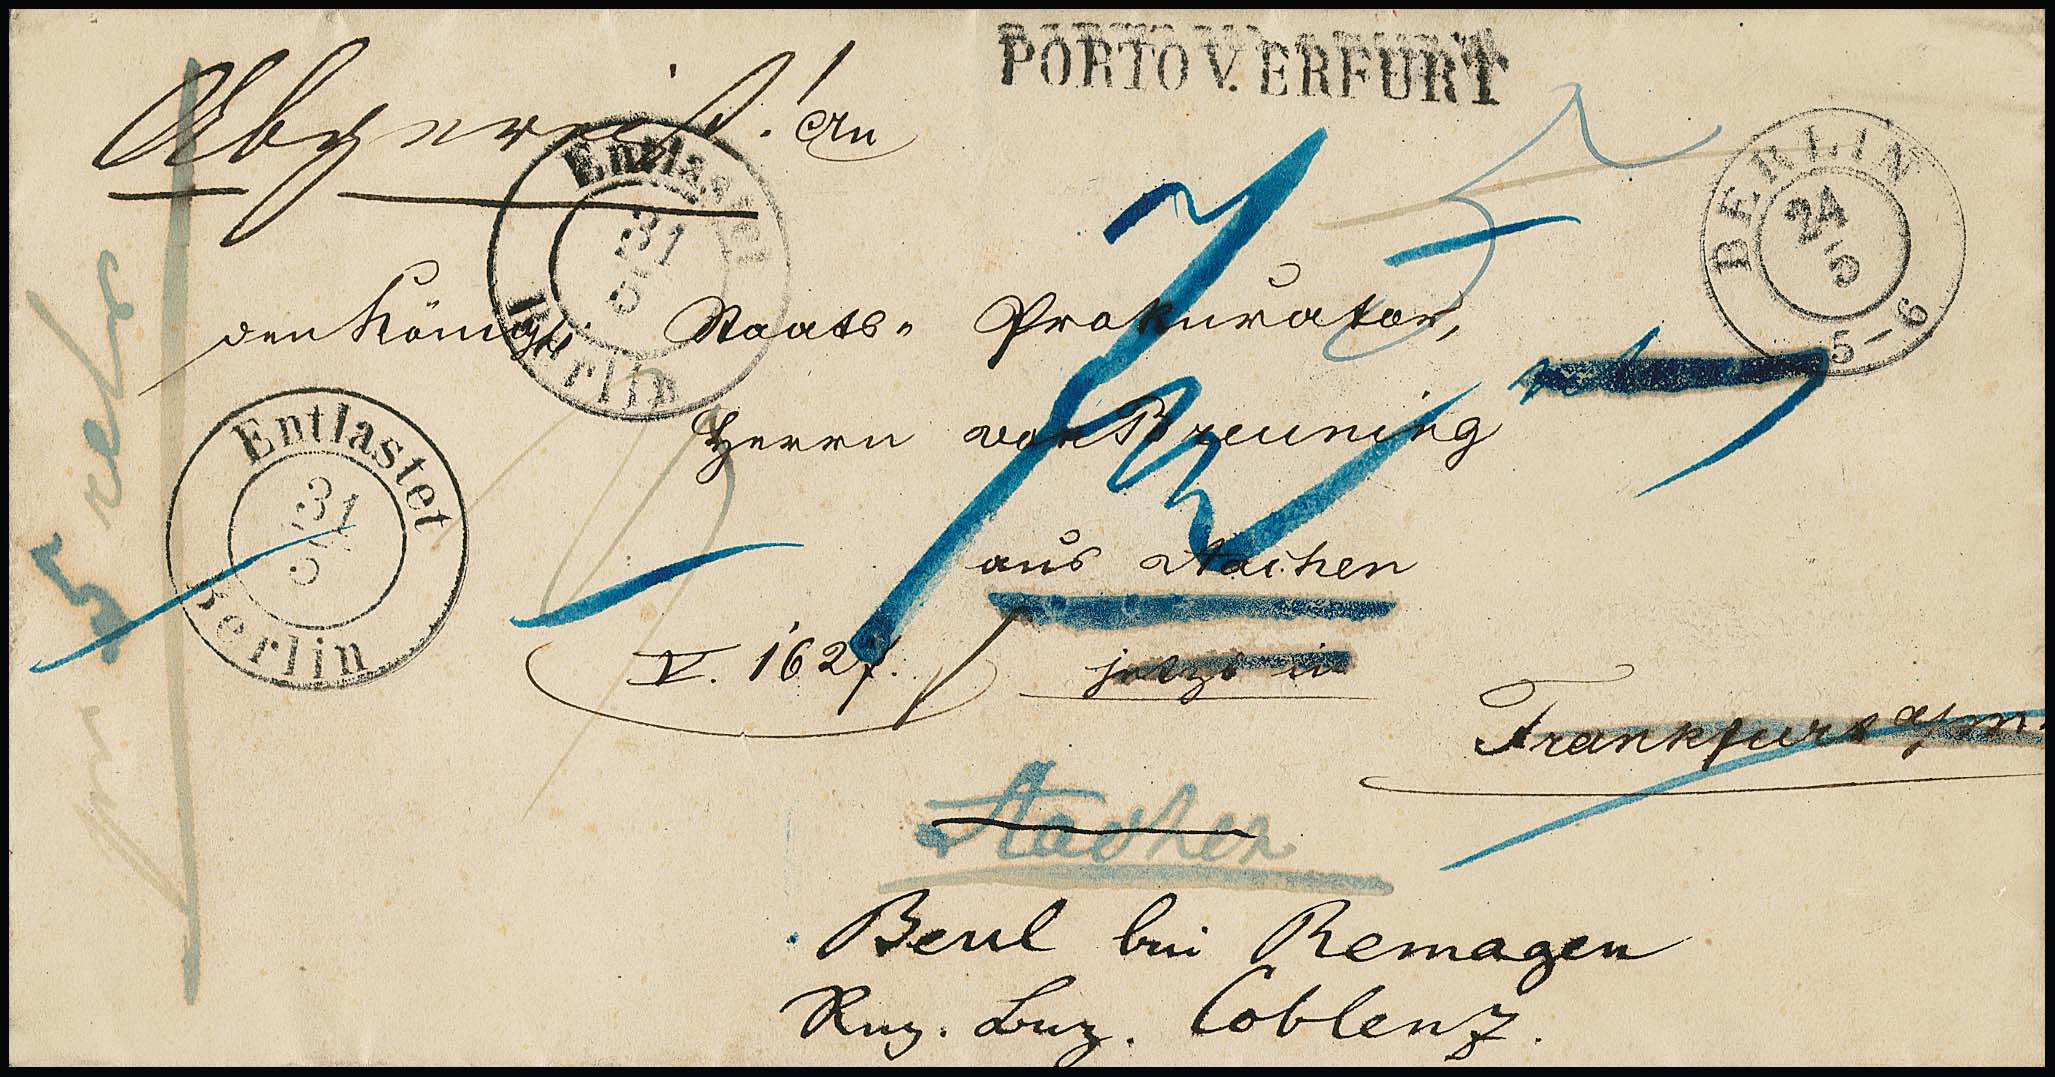 PORTO V. ERFURT
Abgereist! An
BERLIN
24
5
5-6
Entlastet
31
5
Berlin
den Königl. Staats- Prokurator,
Herrn von Breuning
Entlastet
31
5
Berlin
aus Aachen
V. 1627.
jetzt in
Frankfurt a/m.
Aachen
Beul bei Remagen
Rug. Bez. Coblenz.